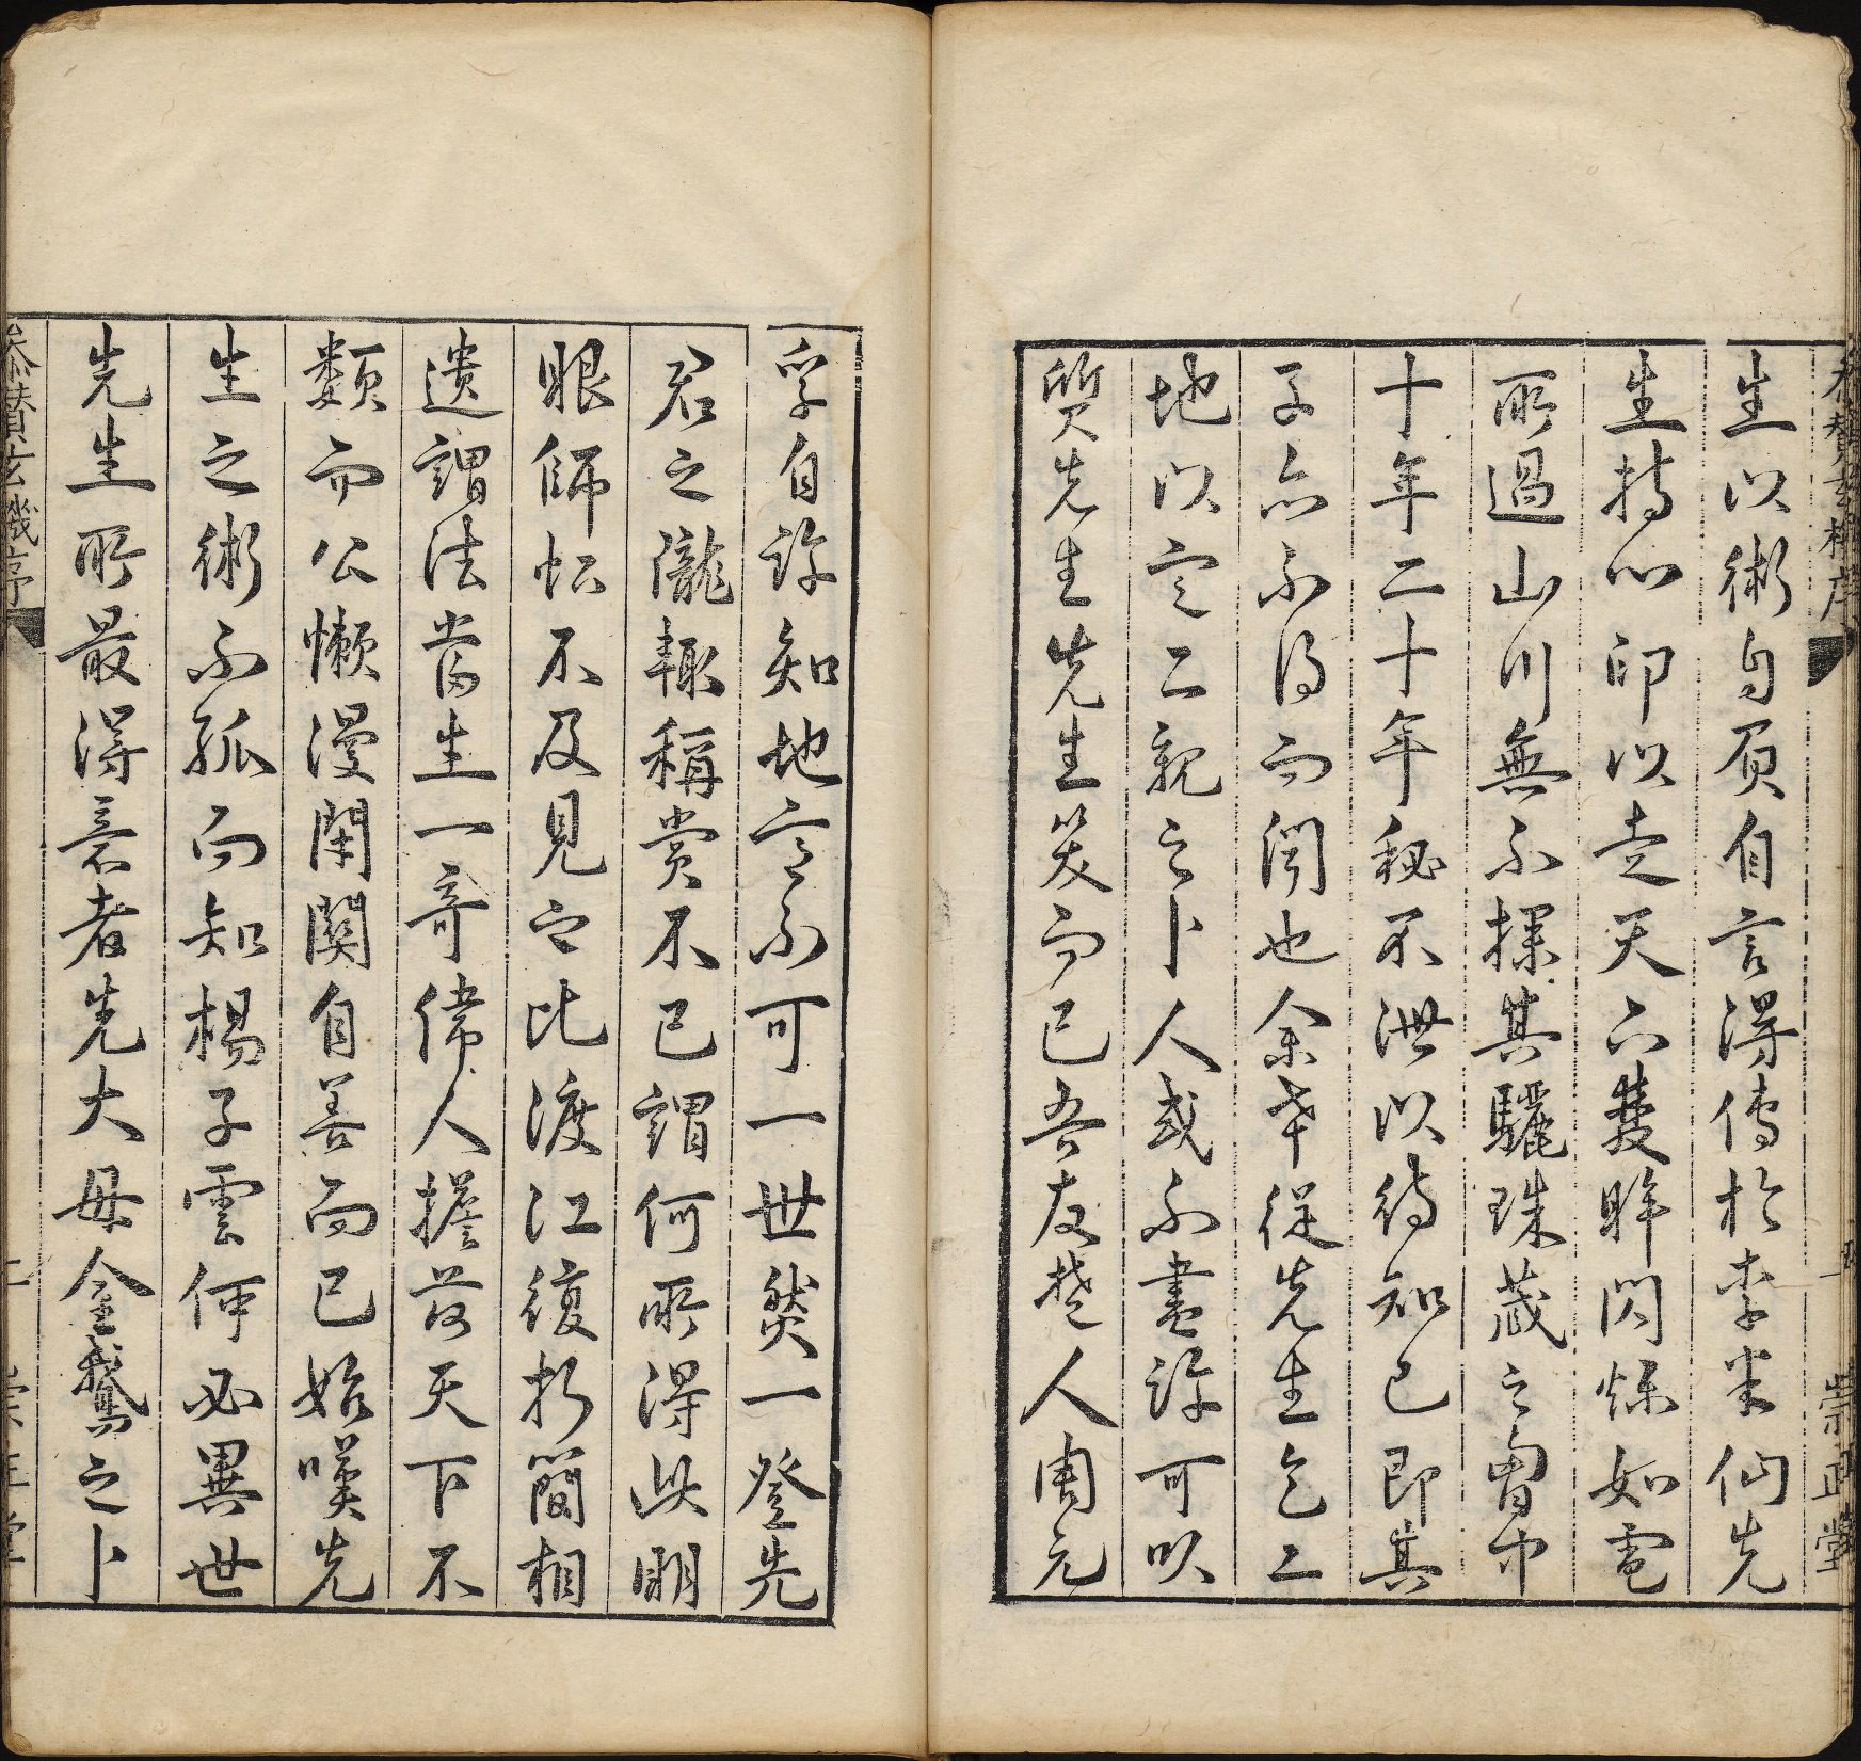 參贊玄機序
崇正堂
生以術自負自言得傳於李半仙先
生持心印以走天下雙眸閃爍如電
所過山川無不探其驪珠藏之胷中
十年二十年秘不泄以待知已即其
子亦不得而聞也余年從先生乞二
地以定二親之卜人或不盡許可以
質先生先生笑而已吾友楚人周元
孚自許知地言不可一世然一登先
君之隴輒稱賞不已謂何所得此明
眼師恨不及見之比渡江復折簡相
遺謂法當生一奇偉人擔荷天下不
類而公懶漫閉關自善而已始嘆先
生之術不孤而知楊子雲何必異世
先生所最得意者先大母金鵝之卜
參贊玄機序
二
崇正堂